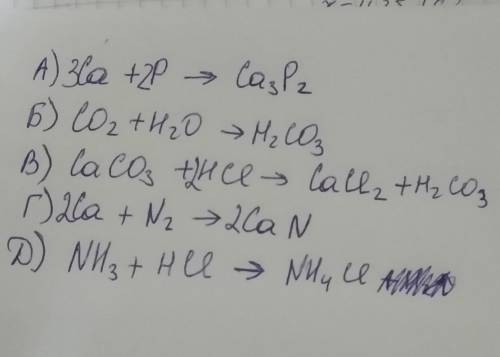 А) 3Ca + 2P → Ca₃P₂
Б) CO₂ + H₂O → H₂CO₃
В) CaCO₃ + 2HCl → CaCl₂ + H₂CO₃
Г) 2Ca + N₂ → 2CaN
Д) NH₃ + HCl → NH₄Cl